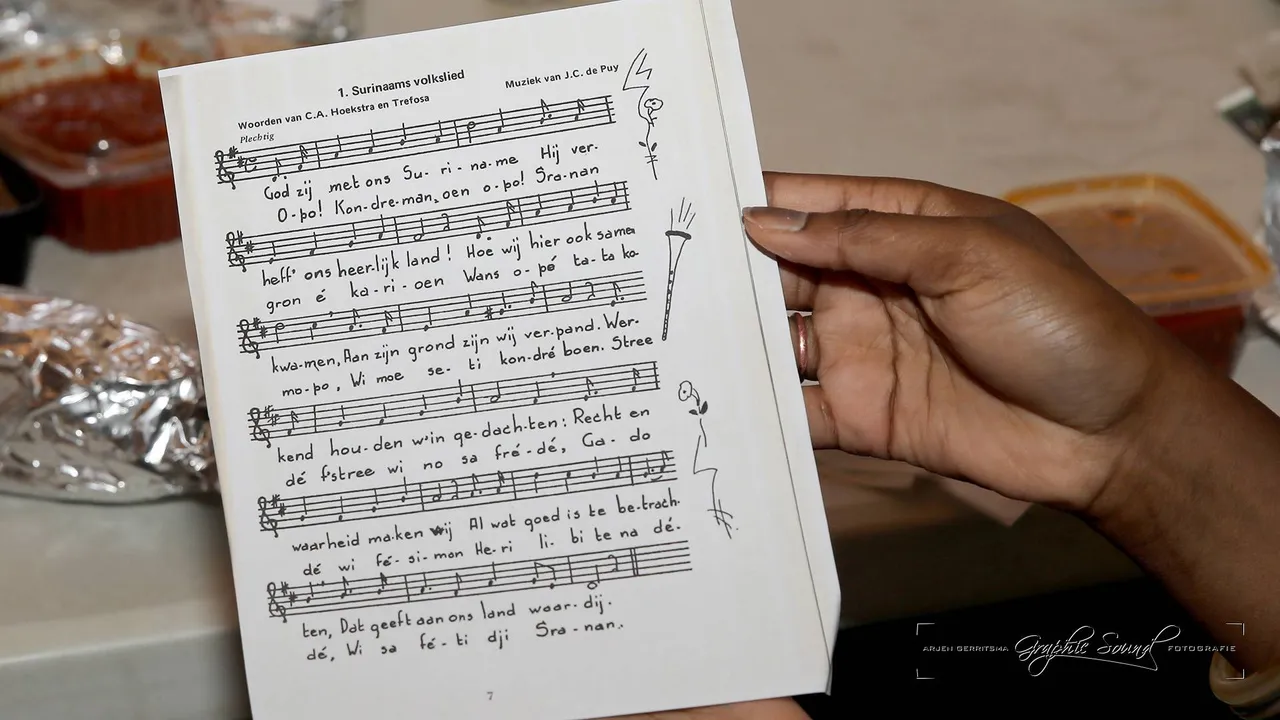 1. Surinaams volkslied
Woorden van C.A. Hoekstra en Trefosa
Muziek van J.C. de Puy
Plechtig
God zij met ons Su- ri- na- me Hij ver-
O- po! Kon- dre- man, oen o- po! Sra- nan
heff' ons heer- lijk land! Hoe wij hier ook samen
gron é ka- ri- oen Wans o- pé ta- ta ko-
kwa- men, Aan zijn grond zijn wij ver- pand. Wer-
mo- po, Wi moe se- ti kon- dré boen. Stree
kend hou- den w'in ge- dach- ten: Recht en
dé f'stree wi no sa fré- dé, Ga- do
waarheid maken wij Al wat goed is te be- trach-
dé wi fé- si- man He- ri li- bi te na dé-
ten, Dat geeft aan ons land waar- dij.
dé, Wi sa fé- ti dji Sra- nan.
7
ARJEN GERRITSMA Graphic Sound FOTOGRAFIE